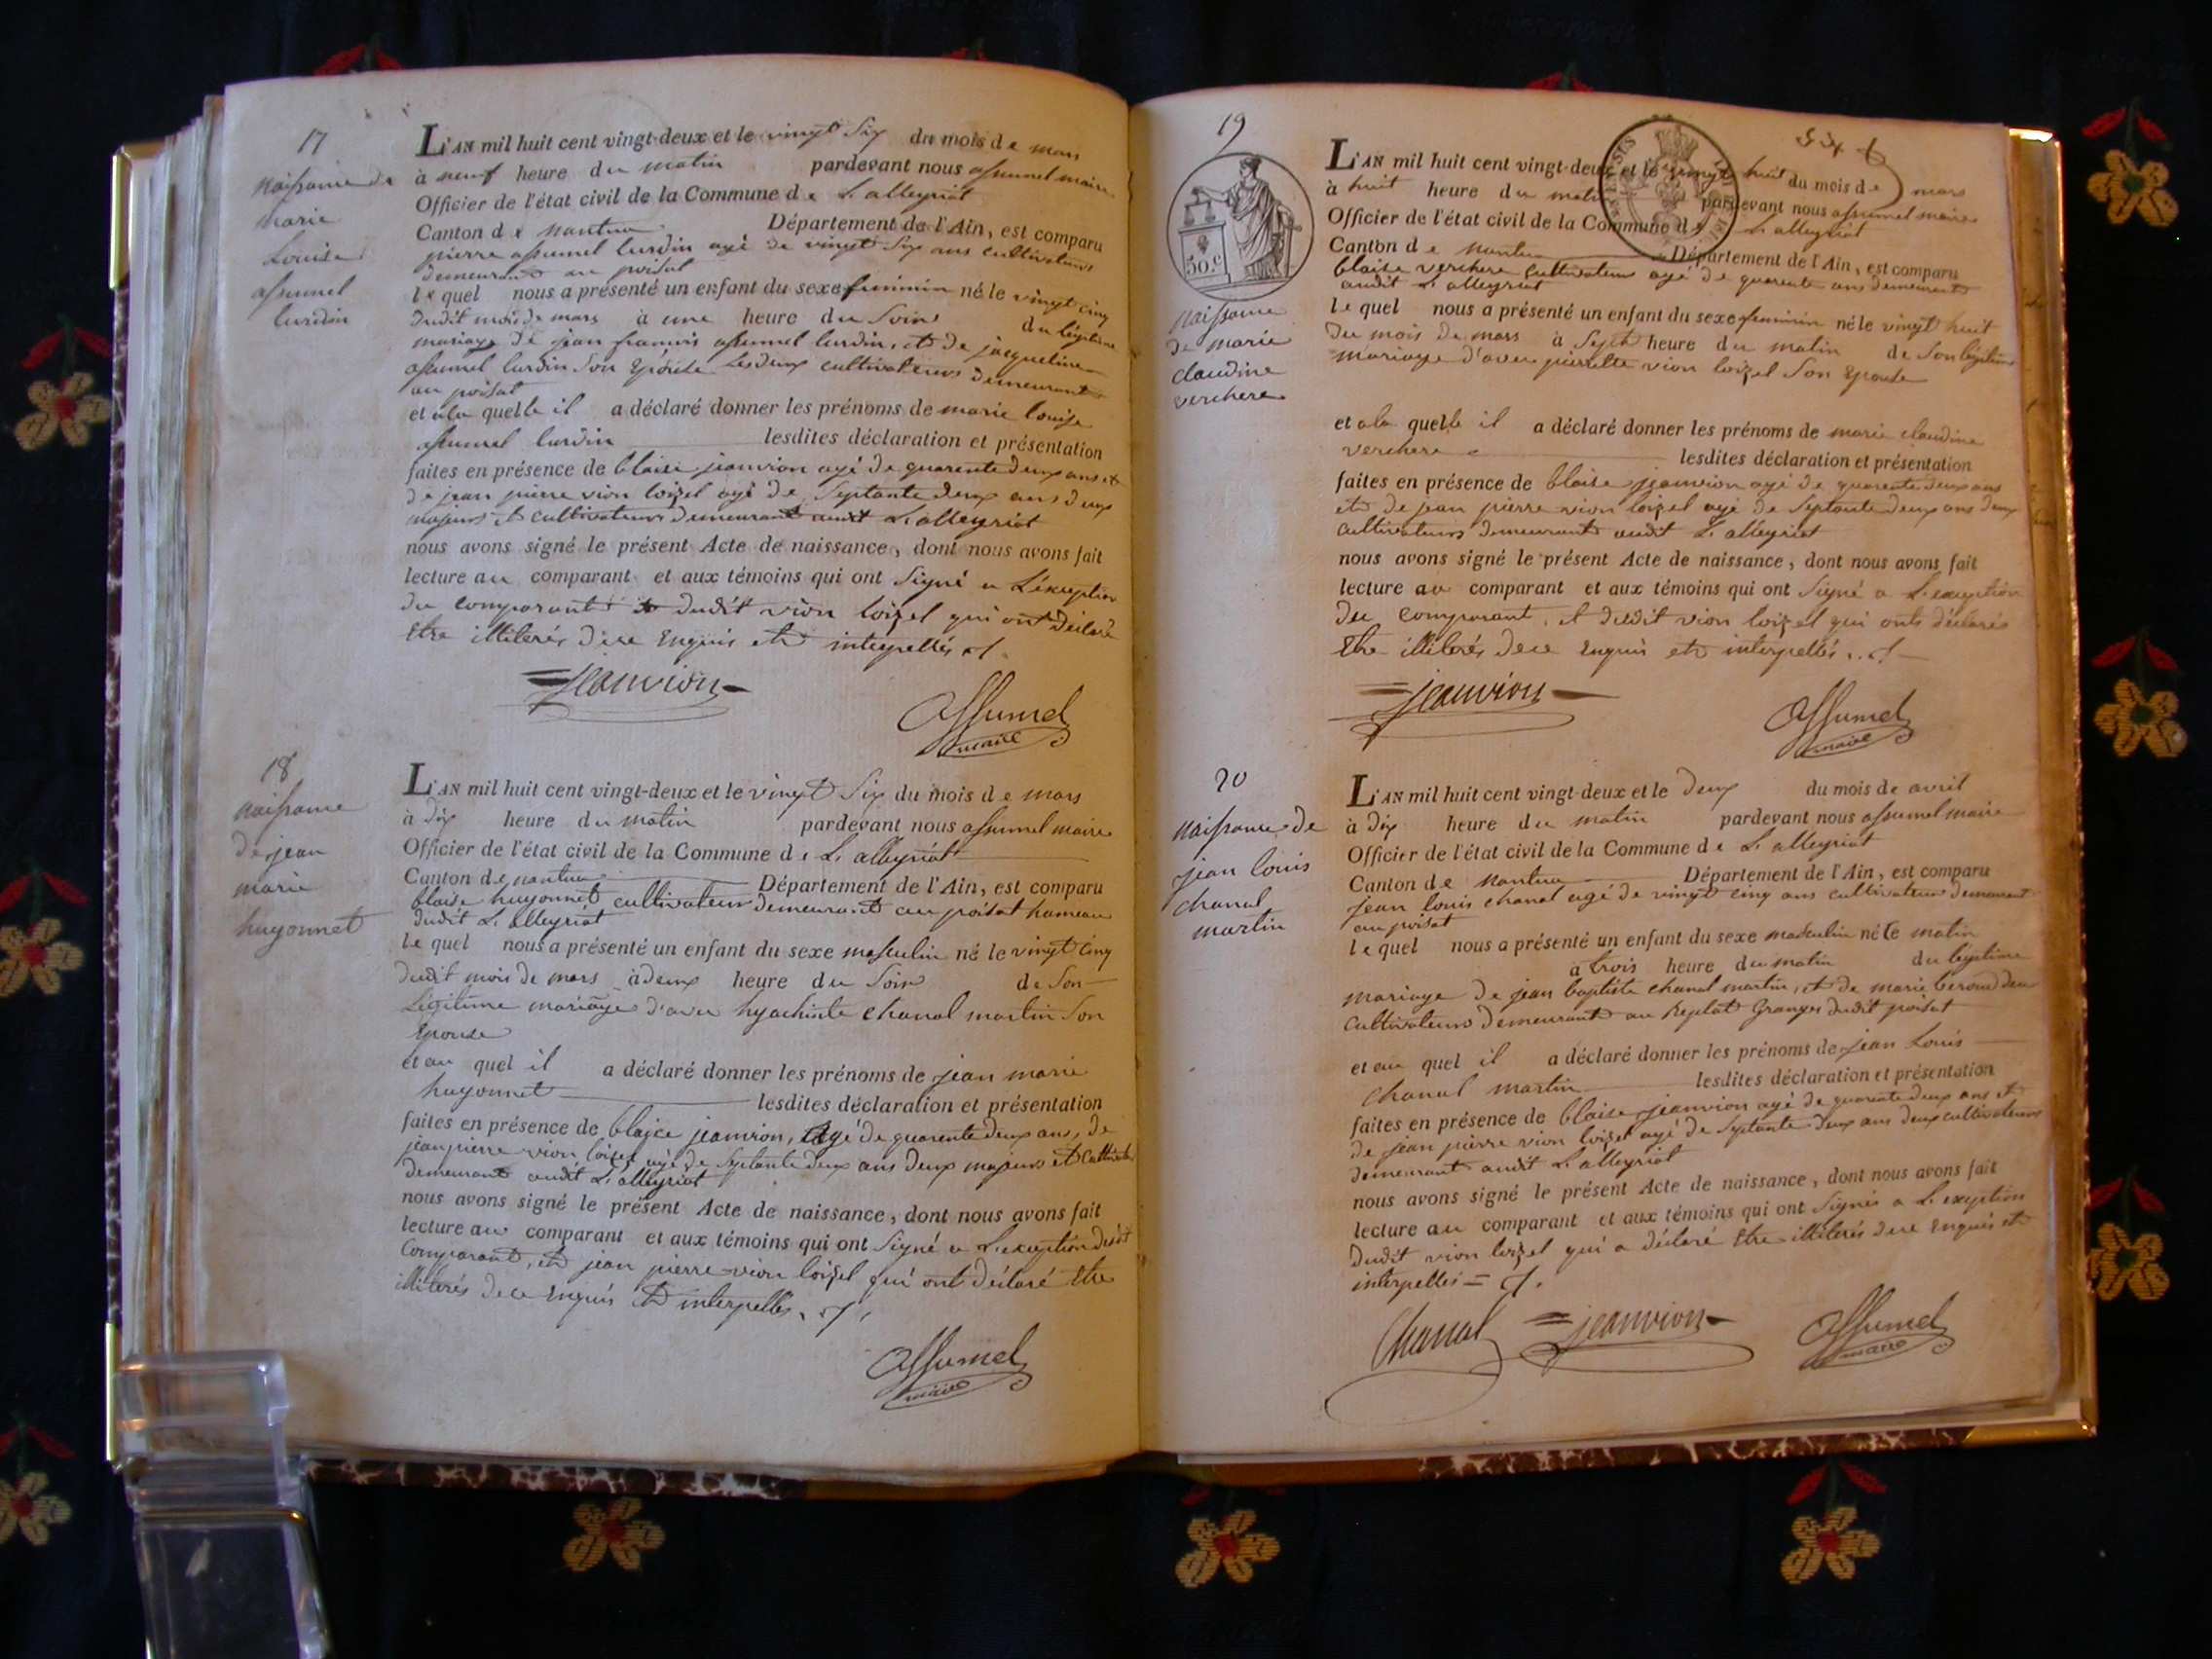 17
naissance de
marie
Louise
assumel
lurdin
L'AN mil huit cent vingt-deux et le vingt six du mois de mars
à neuf heure du matin pardevant nous assumel maire
Officier de l'état civil de la Commune de L'alleyriat
Canton de nantua Département de l'Ain, est comparu
pierre assumel lurdin agé de vingt six ans cultivateur
demeurant au poisat
lequel nous a présenté un enfant du sexe feminin né le vingt cinq
dudit mois de mars à une heure du soir du légitime
mariage de jean francois assumel lurdin, et de jacqueline
assumel lurdin son épouse les deux cultivateurs demeurant
au poisat
et a la quelle il a déclaré donner les prénoms de marie louise
assumel lurdin lesdites déclaration et présentation
faites en présence de blaise jeanvion agé de quarente deux ans et
de jean pierre vion loizel agé de septante deux ans deux
majeurs et cultivateurs demeurant audit L'alleyriat
nous avons signé le présent Acte de naissance, dont nous avons fait
lecture au comparant et aux témoins qui ont signé a L'éxeption
du comparant et dudit vion loizel qui ont déclaré
Etre illiterés dece Enquis et interpellés ./.
jeanvion
Assumel
maire
18
naissance
de jean
marie
huyonnet
L'AN mil huit cent vingt-deux et le vingt six du mois de mars
à dix heure du matin pardevant nous assumel maire
Officier de l'état civil de la Commune de L'alleyriat
Canton de nantua Département de l'Ain, est comparu
blaise huyonnet cultivateur demeurant au poisat hameau
dudit L'alleyriat
lequel nous a présenté un enfant du sexe masculin né le vingt cinq
dudit mois de mars à deux heure du soir de son
Légitime mariage d'avec hyachinte chanal martin son
Epouse
et au quel il a déclaré donner les prénoms de jean marie
huyonnet lesdites déclaration et présentation
faites en présence de blaise jeanvion, agé de quarente deux ans, de
jean pierre vion loizel agé de septante deux ans deux majeurs et cultivateurs
demeurant audit L'alleyriat
nous avons signé le présent Acte de naissance, dont nous avons fait
lecture au comparant et aux témoins qui ont signé a L'exeption dudit
Comparant, et jean pierre vion loizel qui ont déclaré Etre
illiterés dece Enquis et interpellés ./.
Assumel
maire
19
50.c
naissance
de marie
claudine
verchere
L'AN mil huit cent vingt-deux et le vingt huit du mois de mars
à huit heure du matin pardevant nous assumel maire
Officier de l'état civil de la Commune de L'alleyriat
Canton de nantua Département de l'Ain, est comparu
blaise verchere cultivateur agé de quarente ans demeurant
audit L'alleyriat
lequel nous a présenté un enfant du sexe feminin né le vingt huit
du mois de mars à sept heure du matin de son légitime
mariage d'avec pierrette vion loizel son Epouse
et a la quelle il a déclaré donner les prénoms de marie claudine
verchere lesdites déclaration et présentation
faites en présence de blaise jeanvion agé de quarente deux ans
et de jean pierre vion loizel agé de septante deux ans deux
cultivateurs demeurant audit L'alleyriat
nous avons signé le présent Acte de naissance, dont nous avons fait
lecture au comparant et aux témoins qui ont signé a L'exeption
du comparant, et dudit vion loizel qui onts déclarés
Etre illiterés dece Enquis et interpellés ./.
jeanvion
Assumel
maire
20
naissance de
jean louis
chanal
martin
L'AN mil huit cent vingt-deux et le deux du mois de avril
à dix heure du matin pardevant nous assumel maire
Officier de l'état civil de la Commune de L'alleyriat
Canton de nantua Département de l'Ain, est comparu
jean louis chanal agé de vingt cinq ans cultivateur demeurant
au poisat
lequel nous a présenté un enfant du sexe masculin né le matin
à trois heure du matin du légitime
mariage de jean baptiste chanal martin, et de marie beroud deux
cultivateurs demeurant au Replat Granges dudit poisat
et au quel il a déclaré donner les prénoms de jean Louis
Chanal martin lesdites déclaration et présentation
faites en présence de blaise jeanvion agé de quarente deux ans et
de jean pierre vion loizel agé de septante deux ans deux cultivateurs
demeurant audit L'alleyriat
nous avons signé le présent Acte de naissance, dont nous avons fait
lecture au comparant et aux témoins qui ont signés a L'exeption
dudit vion loizel qui a déclaré Etre illiterés dece Enquis et
interpellés = ./.
Chanal jeanvion Assumel
maire